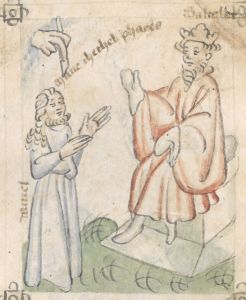 mane thechel phares
daniel